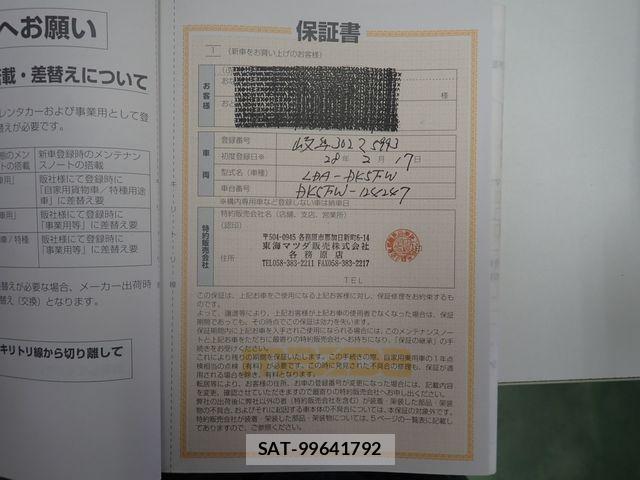 へお願い
搭載・差替えについて
レンタカーおよび事業用として登
替えが必要です。
新車登録時のメンテナン
スノートの搭載
販社様にて登録時に
「自家用貨物車／特種用途
車」に差替え要
販社様にて登録時に
「事業用等」に差替え要
販社様にて登録時に
「事業用等」に差替え要
替えが必要な場合、メーカー出荷時
替え（交換）となります。
キリトリ線から切り離して
キリトリ線
保証書
1
（新車をお買い上げのお客様）
お客様
様
車両
登録番号
302 5993
初度登録日※ 28年 2月 17日
型式名（車種） LDA-DK5FW
車台番号 DK5FW-124247
※構内専用車など登録しない車は納車日
特約販売会社
特約販売会社名（店舗、支店、営業所）
（認印）
〒504-0945 各務原市那加日新町6-14
東海マツダ販売株式会社
各務原店
住所
TEL058-383-2211 FAX058-383-2217
TEL
この保証は、上記お車をご使用になる上記お客様に対し、保証修理をお約束するも
のです。
よって、譲渡等により、上記お客様が上記お車の使用者でなくなった場合は、保証
期間であっても、その時点でこの保証は効力を失います。
保証期間内に上記お車を入手されご使用になられる場合は、このメンテナンスノー
トと上記お車をともに最寄りの特約販売会社へお持ちになり、「保証の継承」の手
続きをお受けください。
これにより残りの期間を保証いたします。この手続きの際、自家用乗用車の1年点
検相当の点検（有料）が必要です。この時に発見された不具合の修理も、保証が適
用される場合を除き、有料となります。
転居等により、お客様の住所、お車の登録番号が変更になった場合には、記載内容
を変更、確認させていただきますので最寄りの特約販売会社へお申し出ください。
弊社の出荷後に弊社以外の者（特約販売会社を含む）が装着・架装した部品・架装
物の不具合、およびそれに起因する車本体の不具合については、本保証の対象外です。
特約販売会社が装着・架装した部品・架装物については、5ページの一覧表に記載し
てありますので、ご参照ください。
SAT-99641792